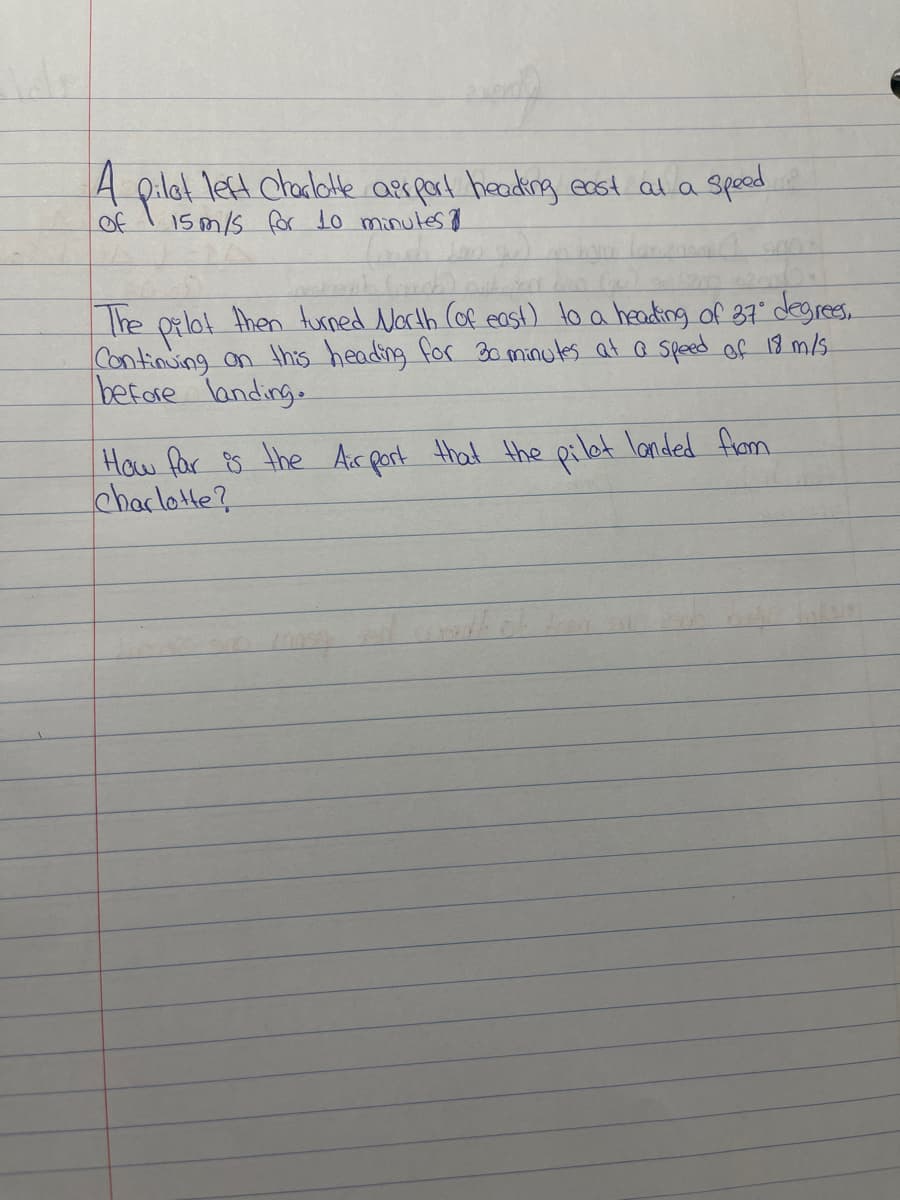 A pilot left Charlotte airport heading east at a speed
of 15 m/s for 10 minutes
The pilot then turned North (of east) to a heading of 37° degrees,
Continuing on this heading for 30 minutes at a speed of 18 m/s
before landing.
How far is the Airport that the pilot landed from
Charlotte?